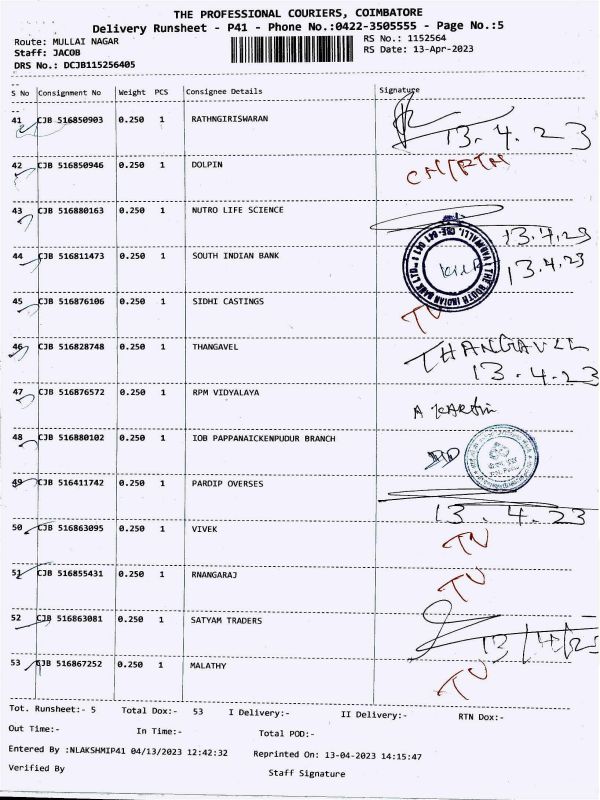 THE PROFESSIONAL COURIERS, COIMBATORE
Delivery Runsheet - P41 - Phone No.:0422-3505555 - Page No.:5
Route: MULLAI NAGAR RS No.: 1152564
Staff: JACOB RS Date: 13-Apr-2023
DRS No.: DCJB115256405
S No Consignment No Weight PCS Consignee Details Signature
41 CJB 516850903 0.250 1 RATHNGIRISWARAN 13.4.23
42 CJB 516850946 0.250 1 DOLPIN
43 CJB 516880163 0.250 1 NUTRO LIFE SCIENCE 13.4.23
44 CJB 516811473 0.250 1 SOUTH INDIAN BANK 13.4.23
THE SOUTH INDIAN BANK LTD
45 CJB 516876106 0.250 1 SIDHI CASTINGS TN
46 CJB 516828748 0.250 1 THANGAVEL THANGAVEL
13.4.23
47 CJB 516876572 0.250 1 RPM VIDYALAYA
48 CJB 516880102 0.250 1 IOB PAPPANAICKENPUDUR BRANCH
49 CJB 516411742 0.250 1 PARDIP OVERSES 13.4.23
50 CJB 516863095 0.250 1 VIVEK TN
51 CJB 516855431 0.250 1 RNANGARAJ TN
52 CJB 516863081 0.250 1 SATYAM TRADERS 13/4/23
53 CJB 516867252 0.250 1 MALATHY TN
Tot. Runsheet:- 5 Total Dox:- 53 I Delivery:- II Delivery:- RTN Dox:-
Out Time:- In Time:- Total POD:-
Entered By :NLAKSHMIP41 04/13/2023 12:42:32 Reprinted On: 13-04-2023 14:15:47
Verified By Staff Signature